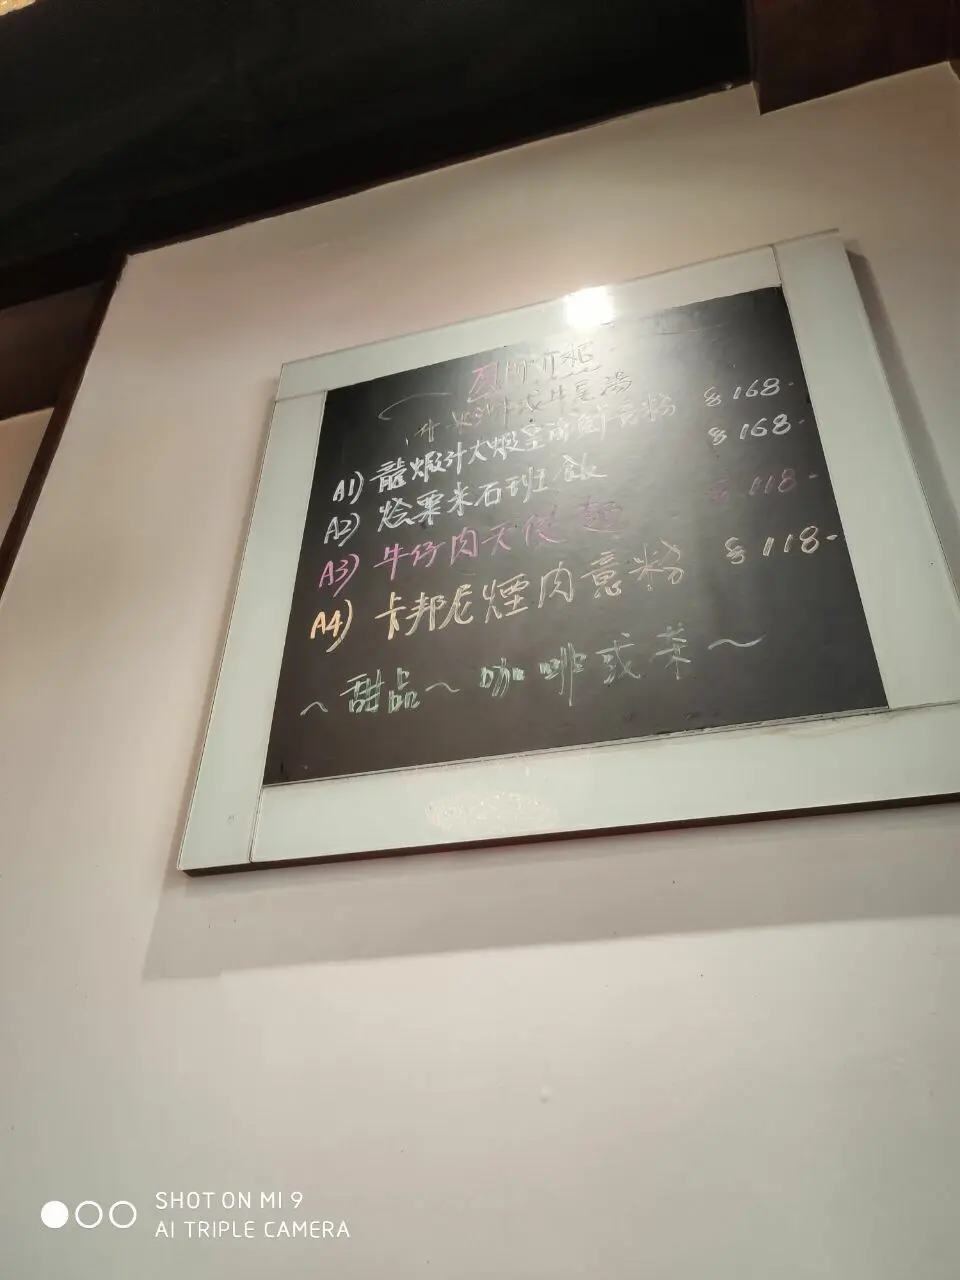 介紹
牛尾湯
A1) 龍蝦汁大蝦意粉 $168-
A2) 烩粟米石班飯 $168-
A3) 牛仔肉天使麵 $118-
A4) 卡邦尼煙肉意粉 $118-
~甜品~咖啡或茶~
SHOT ON MI 9
AI TRIPLE CAMERA